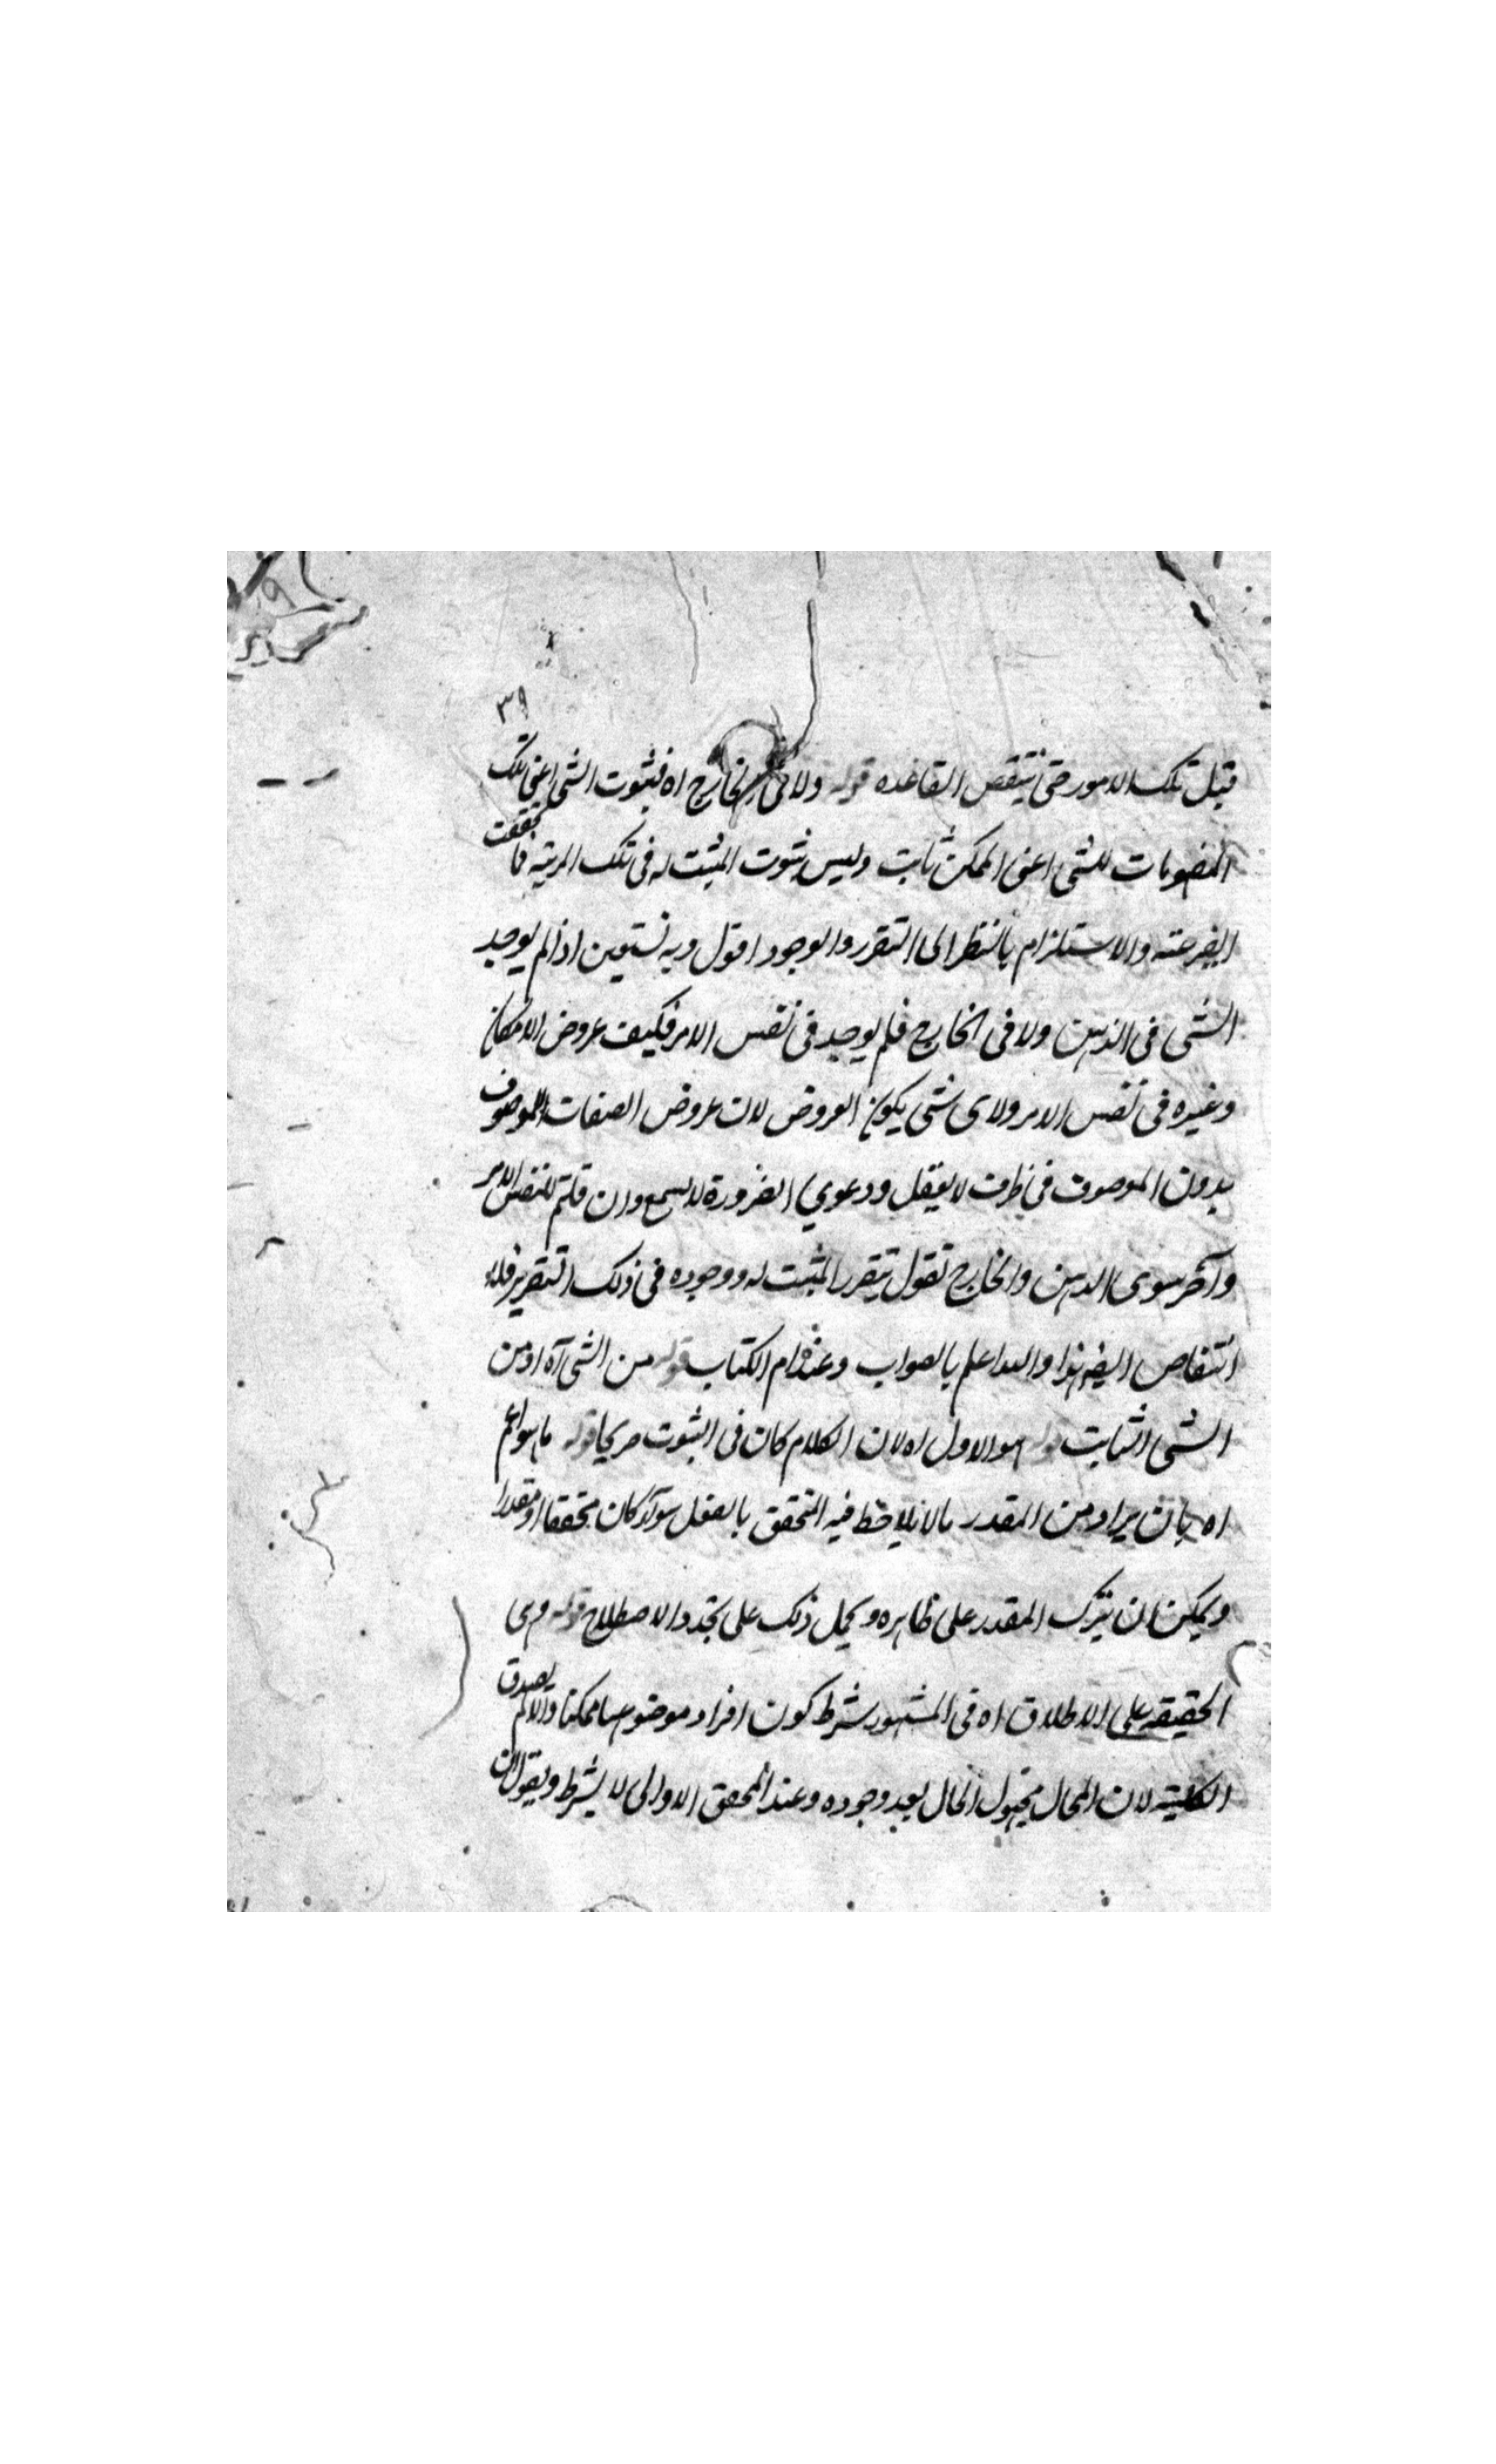 ٣٩
قبل تلك الامور حتى ينتقص القاعده قوله ولا فى الخارج اه فثبوت الشى اعنى تلك
المفهومات للشى اعنى الممكن ثابت وليس ثبوت المثبت له فى تلك المرتبه فما تحققت
الفرعية والاستلزام بالنظر الى التقرر والوجود اقول وبه نستعين اذا لم يوجد
الشى فى الذهن ولا فى الخارج فلم يوجد فى نفس الامر فكيف عروض الامكان
وغيره فى نفس الامر ولاى شى يكون العروض لان عروض الصفات للموصوف
بدون الموصوف فى ظرف لا يعقل ودعوي الضرورة لا يسمع وان قلتم لنفس الامر
وآخر سوى الذهن والخارج نقول يتقرر المثبت له ووجوده فى ذلك التقرير فلا
انتقاص ايضا هذا والله اعلم بالصواب وعنده ام الكتاب قوله من الشى آه اذ من
الشى الثابت قوله هو الاول اه لان الكلام كان فى الثبوت صريحا قوله ما هو اعم
اه بان يراد من المقدر مالا يلاحظ فيه التحقق بالفعل سواء كان محققا او مقدرا
ويمكن ان يترك المقدر على ظاهره ويحمل ذلك على تجدد الاصطلاح قوله وهى
الحقيقه على الاطلاق اه فى المشهور شرط كون افراد موضوعها ممكنا والا لم يصدق
الكلية لان المحال مجهول الحال بعد وجوده وعند المحقق الدوانى لا يشترط ويقول ان